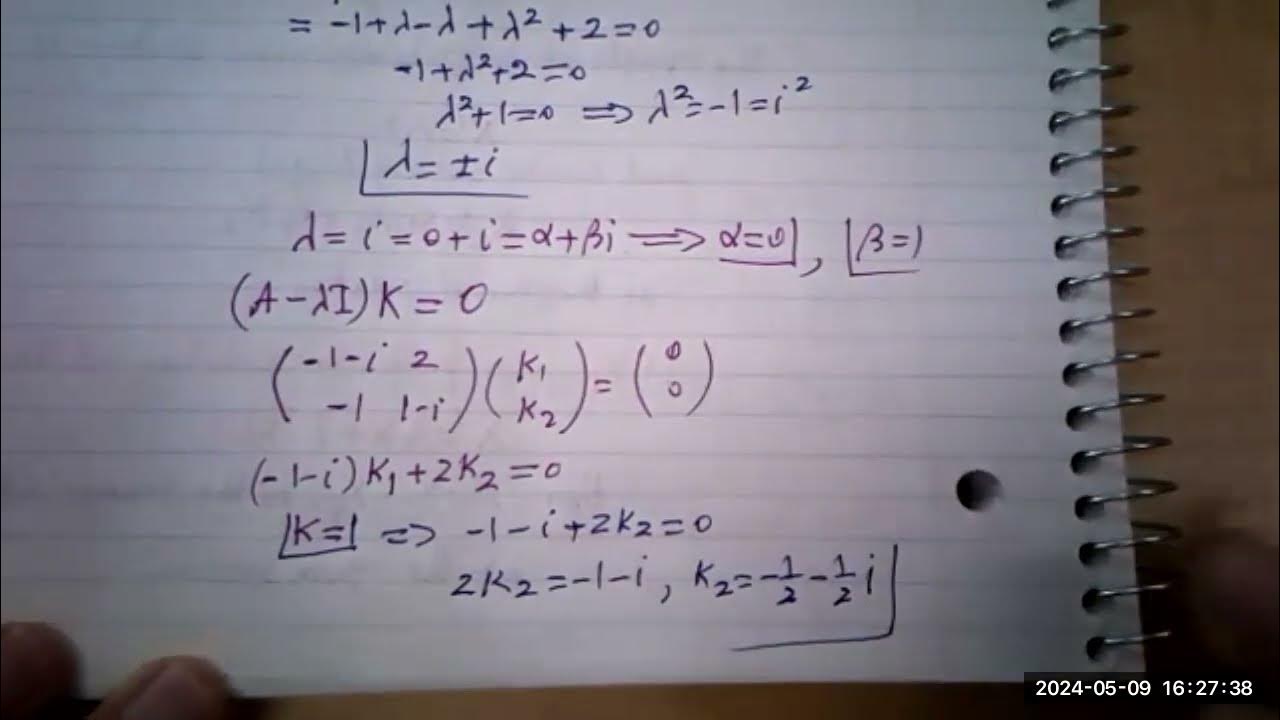 = -1+λ-λ+λ²+2=0
-1+λ²+2=0
λ²+1=0 ⟹ λ²=-1=i²
λ=±i
λ=i=0+i=α+βi ⟹ α=0, β=1
(A-λI)K=0
( -1-i 2 ) ( K₁ ) = ( 0 )
( -1 1-i ) ( K₂ ) ( 0 )
(-1-i)K₁+2K₂=0
K=1 ⟹ -1-i+2K₂=0
2K₂=-1-i, K₂=-1/2-1/2i
2024-05-09 16:27:38